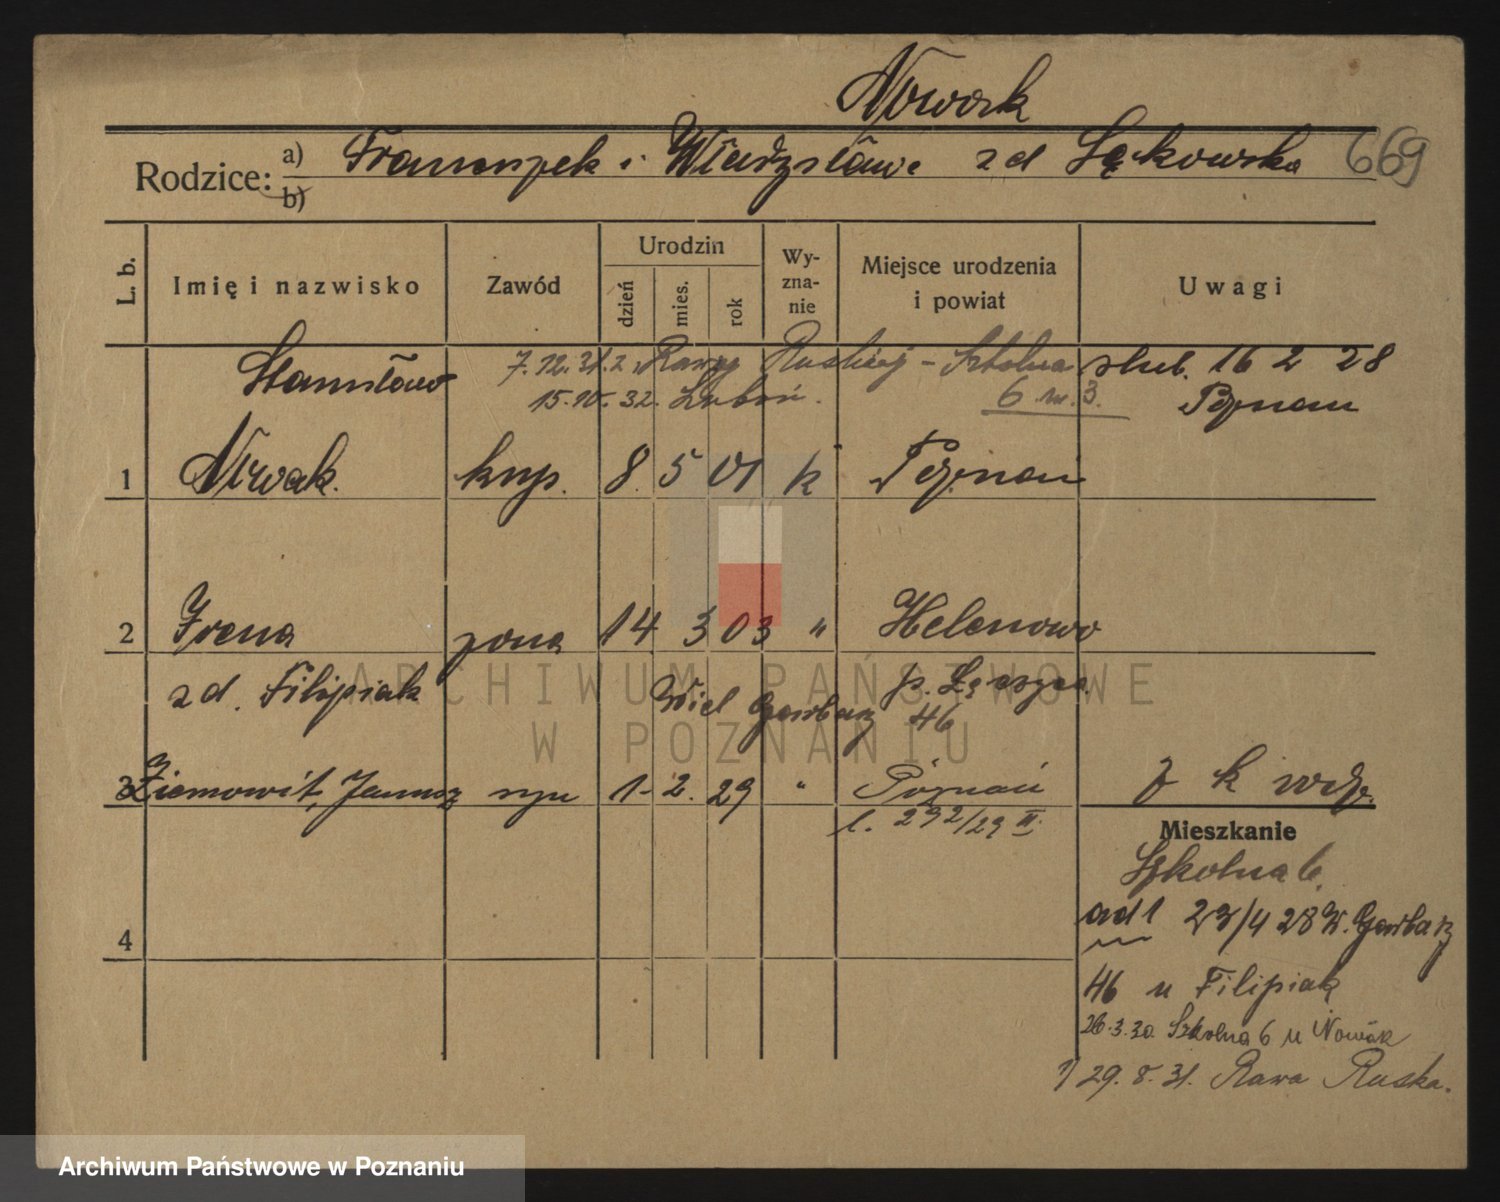 Nowak
Rodzice: a) Franciszek i Władysława zd Łąkowska 669
b)
L. b. Imię i nazwisko Zawód Urodzin Wy-
zna-
nie Miejsce urodzenia
i powiat Uwagi
dzień mies. rok
Stanisław 7.12.31. z Rawy Ruskiej - Szkolna ślub. 16 2 28
15.10.32. Luboń. 6 m. 3. Poznań
1 Nowak. kup. 8. 5 01 k Poznań
2 Irena żona 14 3 03 " Helenowo
zd. Filipiak p. Łęczyca
Wiel Garbary 46
3 Ziemowit, Janusz syn 1. 2. 29 " Poznań
l. 292/29 II.
Mieszkanie
Szkolna 6.
ad 1 23/4 28 W. Garbary
4
46 u Filipiak
26.3.30. Szkolna 6 u Nowak
1) 29. 8. 31. Rawa Ruska.
ARCHIWUM PAŃSTWOWE
W POZNANIU
Archiwum Państwowe w Poznaniu